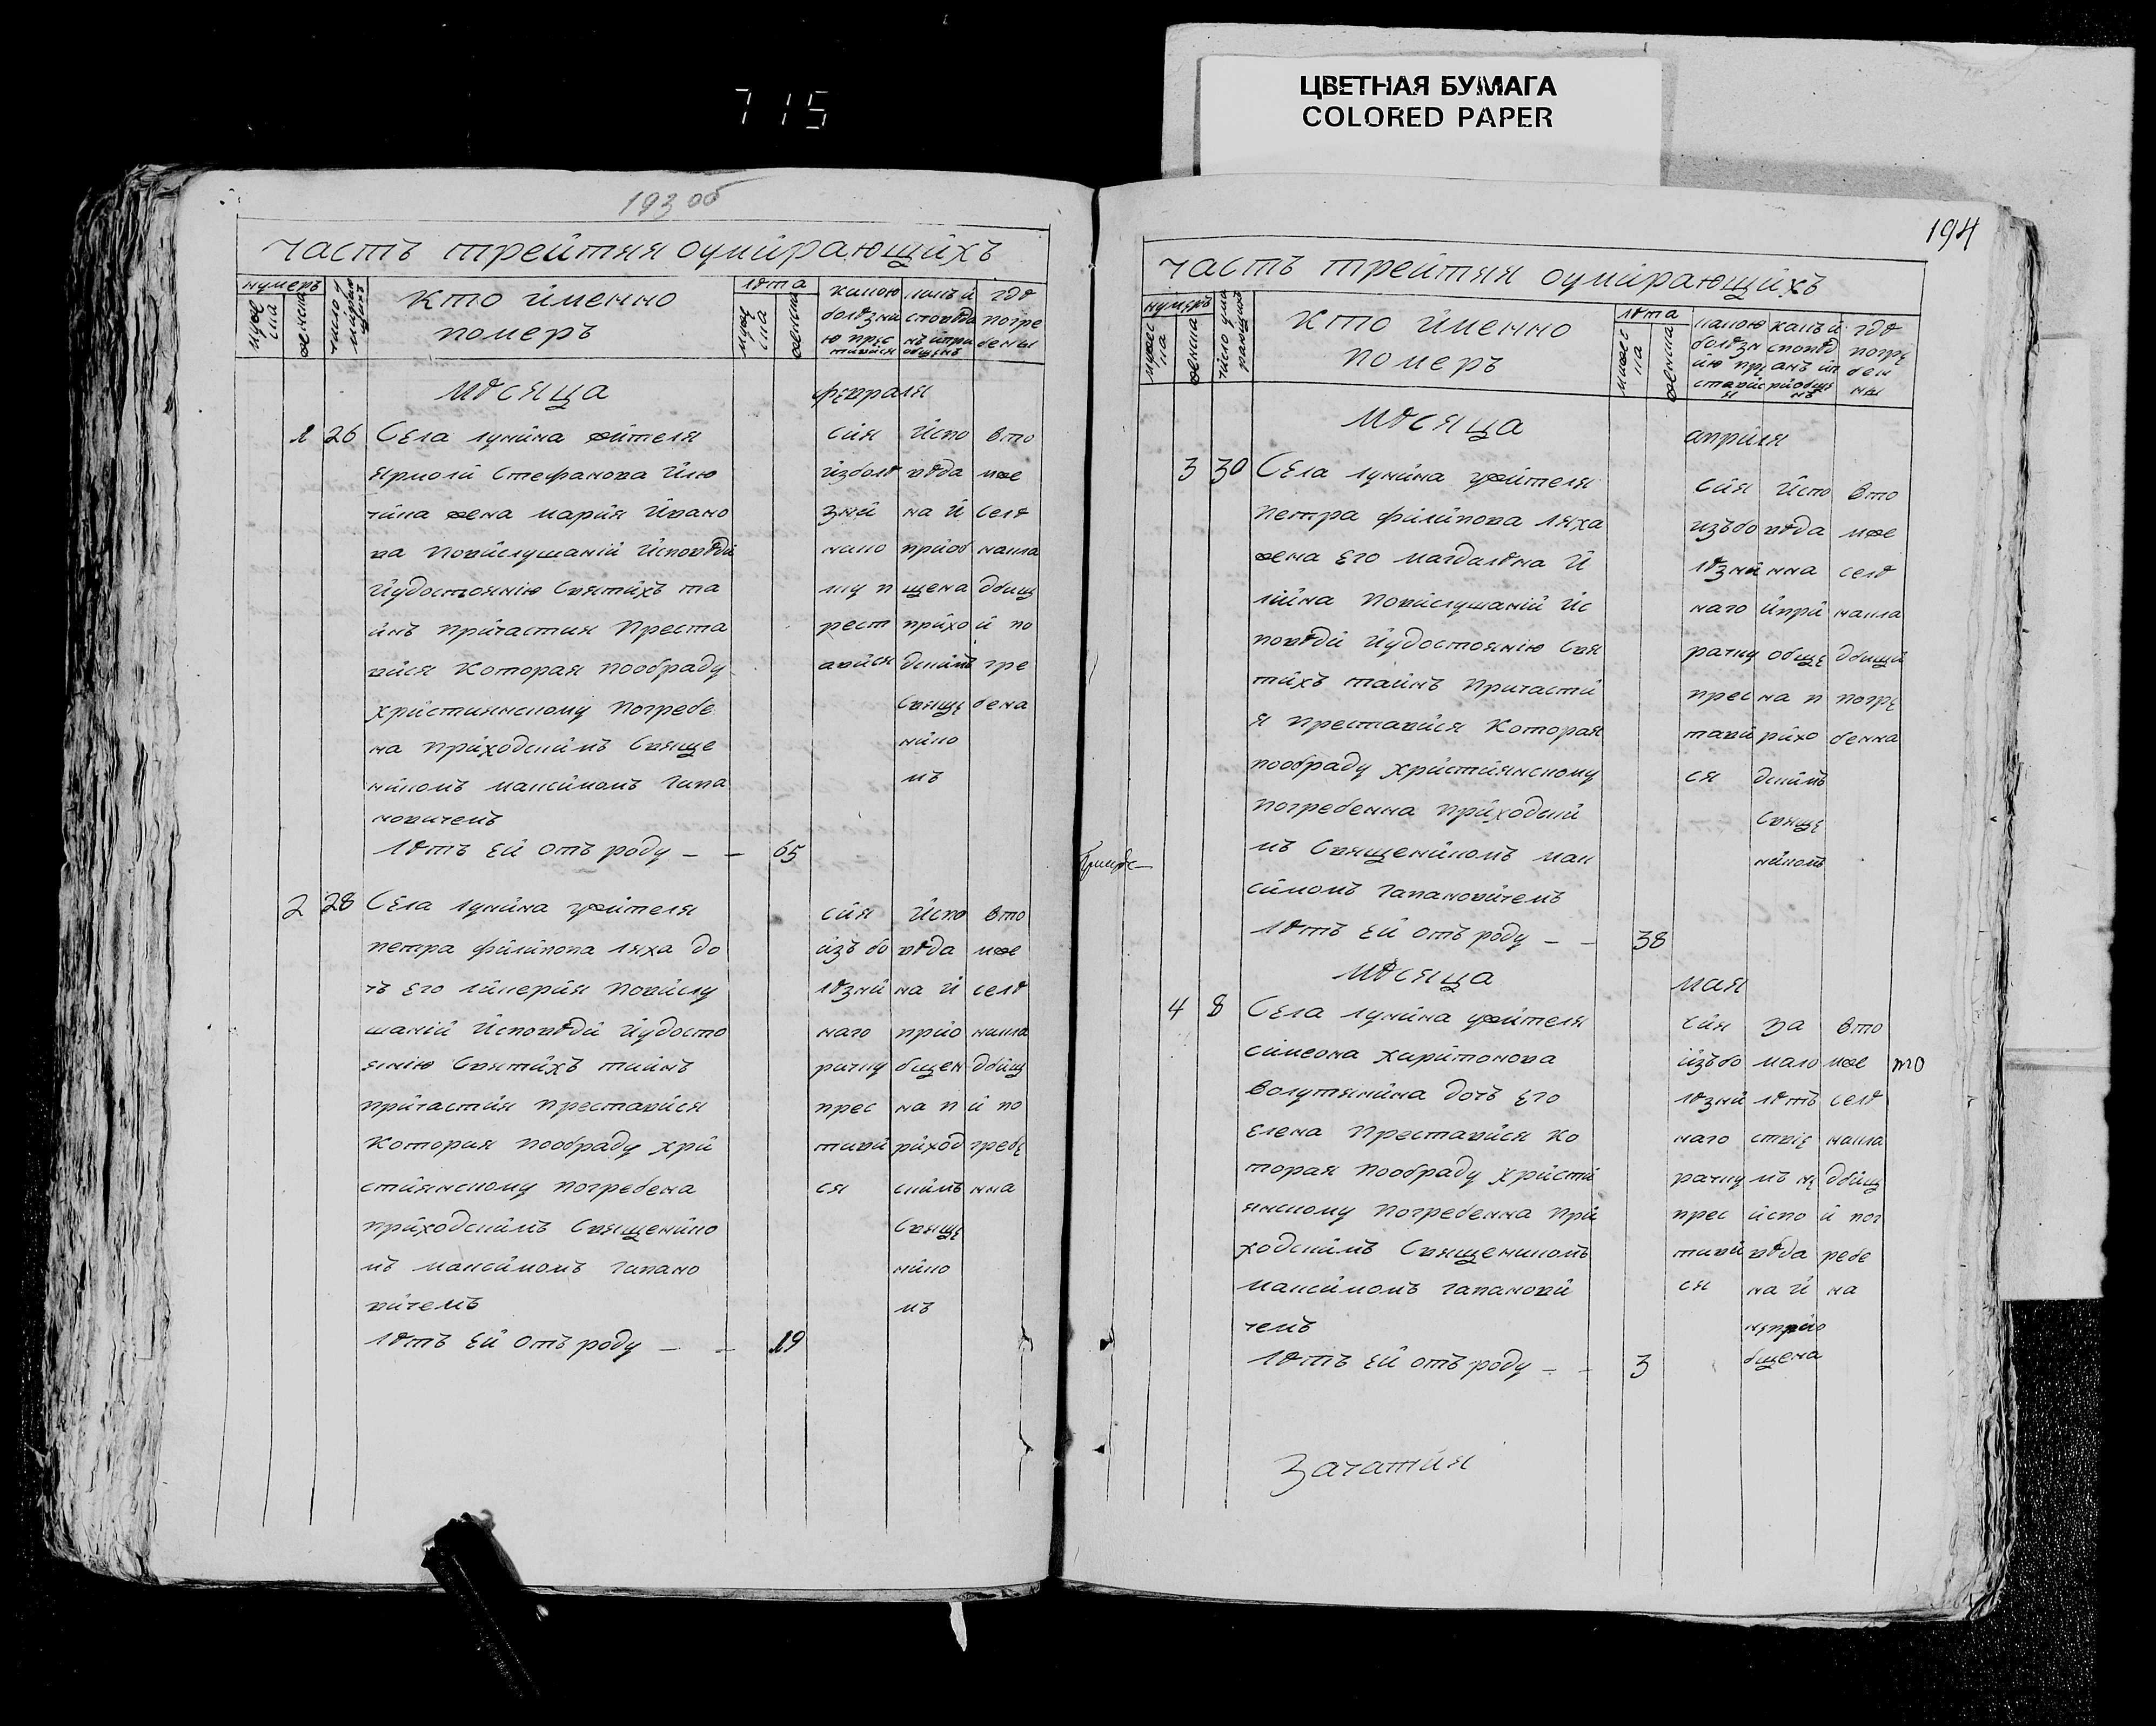 715
ЦВЕТНАЯ БУМАГА
COLORED PAPER
193 об
часть трейтяя оумирающихъ
нумеръ
мужеска
женска
число
кто именно
померъ
лѣта
мужеска
женска
какою
болѣзни
ю прес
тавися
какъ и
сповѣда
нъ и при
общенъ
гдѣ
погре
бены
мѣсяца февраля
1 26 Села лунина жителя
ярмоли Стефанова Илю
чика жена мария Ивано
ва повислушаний исповѣди
иудостоянию Святихъ та
инъ причастия Преста
вися Которая пообраду
християнскому погребе
на приходскимъ Свяще
никомъ максимомъ гапа
новичемъ
лѣтъ ей отъ роду — — 65
сия
изболѣ
зни
рест
ависи
испо
вѣда
на и
приоб
щена
прихо
дским
Свяще
нико
мъ
вто
мже
селѣ
накла
дбищ
и по
гре
бена
2 28 Села лунина жителя
петра филипова ляха до
чъ его гликерия повислу
шаний исповѣди иудосто
янию Святихъ таинъ
причастия преставися
Которая пообраду хри
стиянскому погребена
приходскимъ Священико
мъ максимомъ гапано
вичемъ
лѣтъ ей отъ роду — — 19
сия
изъ бо
лѣзни
наго
рачку
прес
тави
ся
испо
вѣда
на и
прио
бщен
на п
риход
скимъ
Свяще
нико
мъ
вто
мже
селѣ
накла
дбищ
и по
гребе
нна
194
часть трейтяя оумирающихъ
нумеръ
мужеска
женска
число уми
рающихъ
кто именно
померъ
лѣта
мужеска
женска
какою
болѣзн
ию пре
стависи
я
какъ и
сповѣд
анъ ип
риобще
нъ
гдѣ
погре
бен
ны
мѣсяца априля
3 30 Села лунина жителя
петра филипова ляха
жена его магдалѣна и
лина повислушаний ис
повѣди иудостоянию Свя
тихъ таинъ причасти
я преставися Которая
пообраду християнскому
погребенна приходски
мъ Священикомъ мак
симомъ гапановичемъ
лѣтъ ей отъ роду — — 38
сия
изъбо
лѣзни
наго
рачку
прес
тави
ся
испо
вѣда
нна
ипри
обще
на п
рихо
дскимъ
Свяще
никомъ
вто
мже
селѣ
накла
дбищи
погре
бенна
мѣсяца мая
4 8 Села лунина жителя
симеона харитонова
волутянина дочъ его
елена Преставися Ко
торая пообраду христи
янскому погребенна при
ходскимъ Священикомъ
максимомъ гапанови
чемъ
лѣтъ ей отъ роду — — 3
сия
изъбо
лѣзни
наго
рачку
прес
тави
ся
за
мало
лѣтъ
ствие
мъ не
испо
вѣда
на и
неприо
бщена
вто
мже
селѣ
накла
дбищ
и пог
ребе
на
то
Зачатия